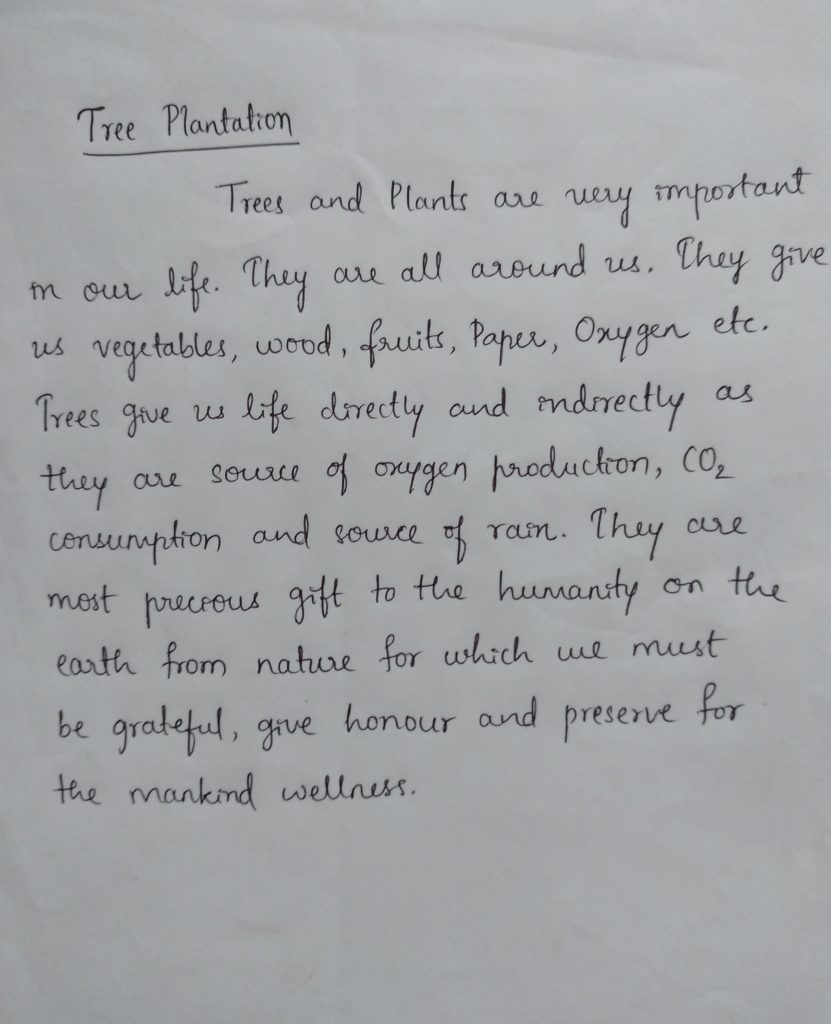 Tree Plantation
Trees and Plants are very important
in our life. They are all around us. They give
us vegetables, wood, fruits, Paper, Oxygen etc.
Trees give us life directly and indirectly as
they are source of oxygen production, CO₂
consumption and source of rain. They are
most precious gift to the humanity on the
earth from nature for which we must
be grateful, give honour and preserve for
the mankind wellness.